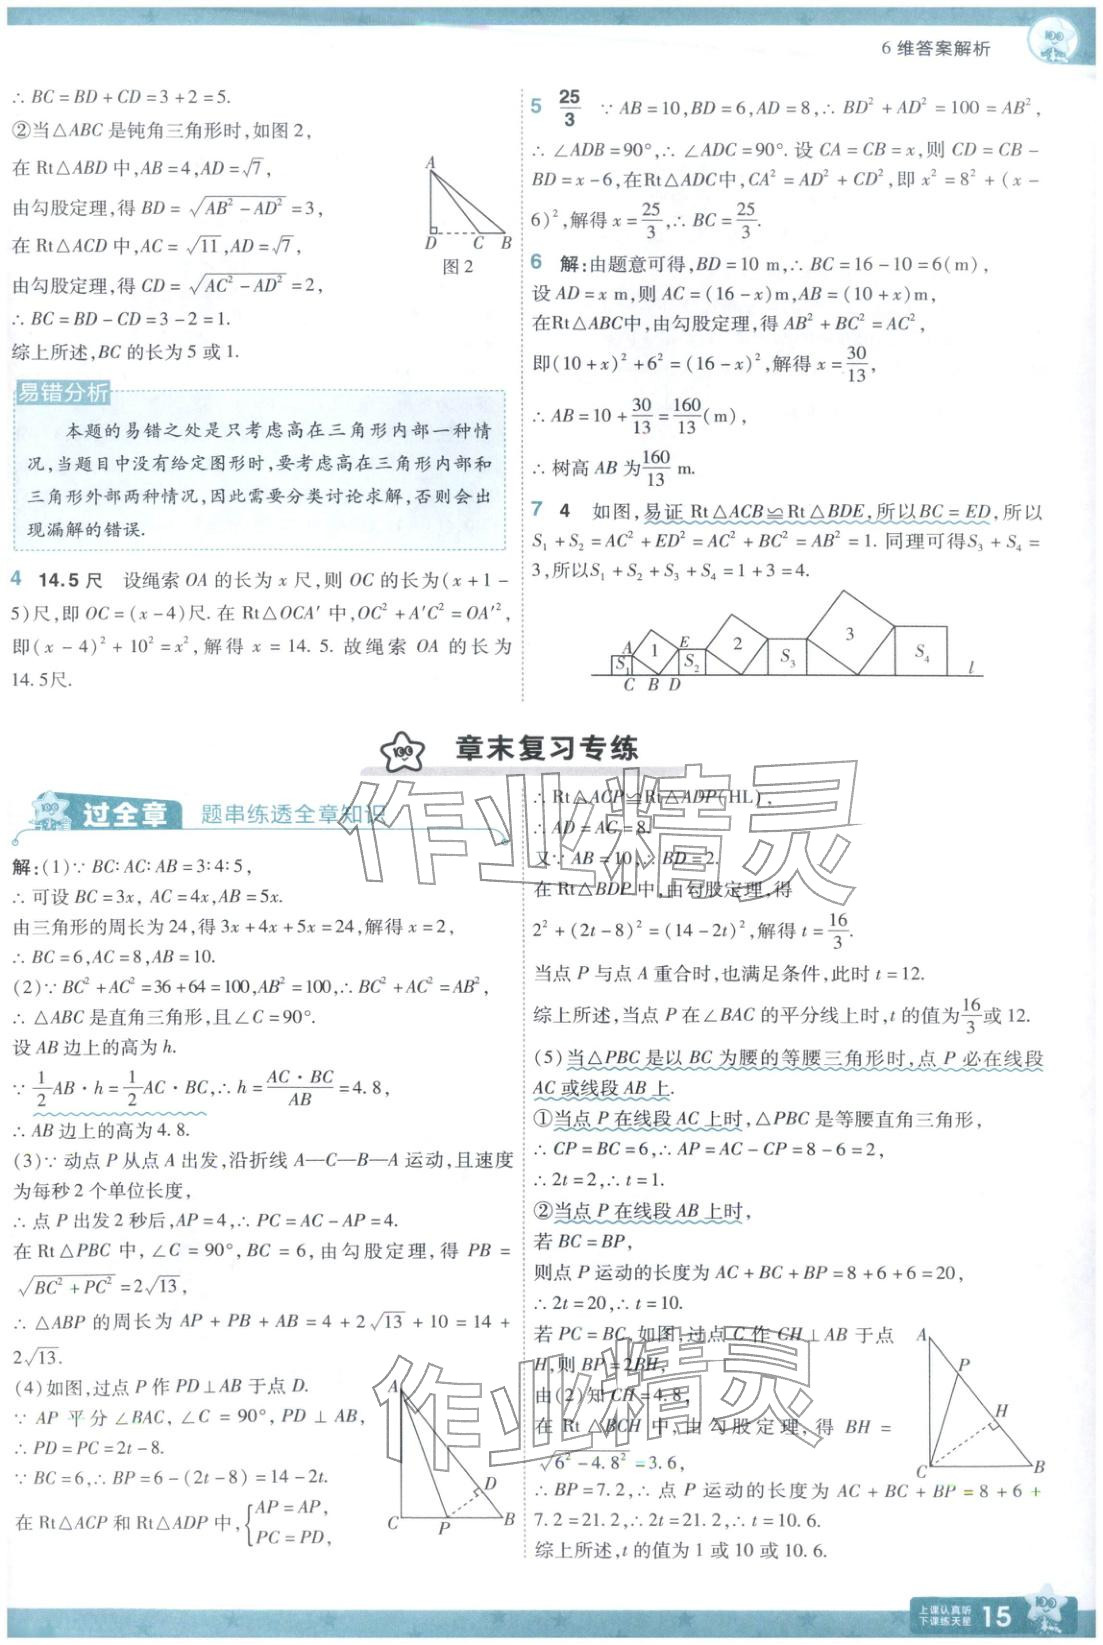 6 维答案解析
∴ BC = BD + CD = 3 + 2 = 5.
②当△ABC 是钝角三角形时,如图 2,
在 Rt△ABD 中, AB = 4, AD = √7,
由勾股定理,得 BD = √(AB² - AD²) = 3,
在 Rt△ACD 中, AC = √11, AD = √7,
由勾股定理,得 CD = √(AC² - AD²) = 2,
∴ BC = BD - CD = 3 - 2 = 1.
综上所述, BC 的长为 5 或 1.
A
D C B
图 2
易错分析
本题的易错之处是只考虑高在三角形内部一种情
况,当题目中没有给定图形时,要考虑高在三角形内部和
三角形外部两种情况,因此需要分类讨论求解,否则会出
现漏解的错误.
4 14.5 尺 设绳索 OA 的长为 x 尺,则 OC 的长为(x + 1 -
5)尺,即 OC = (x - 4)尺. 在 Rt△OCA′ 中, OC² + A′C² = OA′²,
即(x - 4)² + 10² = x²,解得 x = 14. 5. 故绳索 OA 的长为
14.5尺.
5 25/3 ∵ AB = 10, BD = 6, AD = 8, ∴ BD² + AD² = 100 = AB²,
∴ ∠ADB = 90°, ∴ ∠ADC = 90°. 设 CA = CB = x,则 CD = CB -
BD = x - 6,在Rt△ADC中, CA² = AD² + CD²,即 x² = 8² + (x -
6)²,解得 x = 25/3, ∴ BC = 25/3.
6 解:由题意可得, BD = 10 m, ∴ BC = 16 - 10 = 6(m),
设 AD = x m,则 AC = (16 - x)m, AB = (10 + x)m,
在Rt△ABC中,由勾股定理,得 AB² + BC² = AC²,
即(10 + x)² + 6² = (16 - x)²,解得 x = 30/13,
∴ AB = 10 + 30/13 = 160/13(m),
∴ 树高 AB 为160/13 m.
7 4 如图,易证 Rt△ACB≌Rt△BDE,所以BC = ED,所以
S₁ + S₂ = AC² + ED² = AC² + BC² = AB² = 1. 同理可得S₃ + S₄ =
3,所以S₁ + S₂ + S₃ + S₄ = 1 + 3 = 4.
A 1 E 2 3
S₁ S₂ S₃ S₄ l
C B D
章末复习专练
过全章 题串练透全章知识
解:(1)∵ BC∶AC∶AB = 3∶4∶5,
∴ 可设 BC = 3x, AC = 4x, AB = 5x.
由三角形的周长为 24,得 3x + 4x + 5x = 24,解得 x = 2,
∴ BC = 6, AC = 8, AB = 10.
(2)∵ BC² + AC² = 36 + 64 = 100, AB² = 100, ∴ BC² + AC² = AB²,
∴ △ABC 是直角三角形,且∠C = 90°.
设 AB 边上的高为 h.
∵ 1/2 AB · h = 1/2 AC · BC, ∴ h = AC · BC/AB = 4. 8,
∴ AB 边上的高为 4. 8.
(3)∵ 动点 P 从点 A 出发,沿折线 A—C—B—A 运动,且速度
为每秒 2 个单位长度,
∴ 点 P 出发 2 秒后, AP = 4, ∴ PC = AC - AP = 4.
在 Rt△PBC 中, ∠C = 90°, BC = 6,由勾股定理,得 PB =
√(BC² + PC²) = 2√13,
∴ △ABP 的周长为 AP + PB + AB = 4 + 2√13 + 10 = 14 +
2√13.
(4)如图,过点 P 作 PD⊥AB 于点 D.
∵ AP 平分∠BAC, ∠C = 90°, PD⊥AB,
∴ PD = PC = 2t - 8.
∵ BC = 6, ∴ BP = 6 - (2t - 8) = 14 - 2t.
在 Rt△ACP 和 Rt△ADP 中, { AP = AP,
PC = PD,
A
D
C P B
∴ Rt△ACP≌Rt△ADP(HL),
∴ AD = AC = 8.
又∵ AB = 10, ∴ BD = 2.
在 Rt△BDP 中,由勾股定理,得
2² + (2t - 8)² = (14 - 2t)²,解得 t = 16/3.
当点 P 与点 A 重合时,也满足条件,此时 t = 12.
综上所述,当点 P 在∠BAC 的平分线上时, t 的值为16/3或 12.
(5)当△PBC 是以 BC 为腰的等腰三角形时,点 P 必在线段
AC 或线段 AB 上.
①当点 P 在线段 AC 上时, △PBC 是等腰直角三角形,
∴ CP = BC = 6, ∴ AP = AC - CP = 8 - 6 = 2,
∴ 2t = 2, ∴ t = 1.
②当点 P 在线段 AB 上时,
若 BC = BP,
则点 P 运动的长度为 AC + BC + BP = 8 + 6 + 6 = 20,
∴ 2t = 20, ∴ t = 10.
若 PC = BC,如图,过点 C 作 CH⊥AB 于点
H,则 BP = 2BH,
由(2)知 CH = 4. 8,
在 Rt△BCH 中,由勾股定理,得 BH =
√(6² - 4. 8²) = 3. 6,
∴ BP = 7. 2, ∴ 点 P 运动的长度为 AC + BC + BP = 8 + 6 +
7. 2 = 21. 2, ∴ 2t = 21. 2, ∴ t = 10. 6.
综上所述, t 的值为 1 或 10 或 10. 6.
A
P
H
C B
作业精灵
作业精灵
上课认真听
下课练天星
15